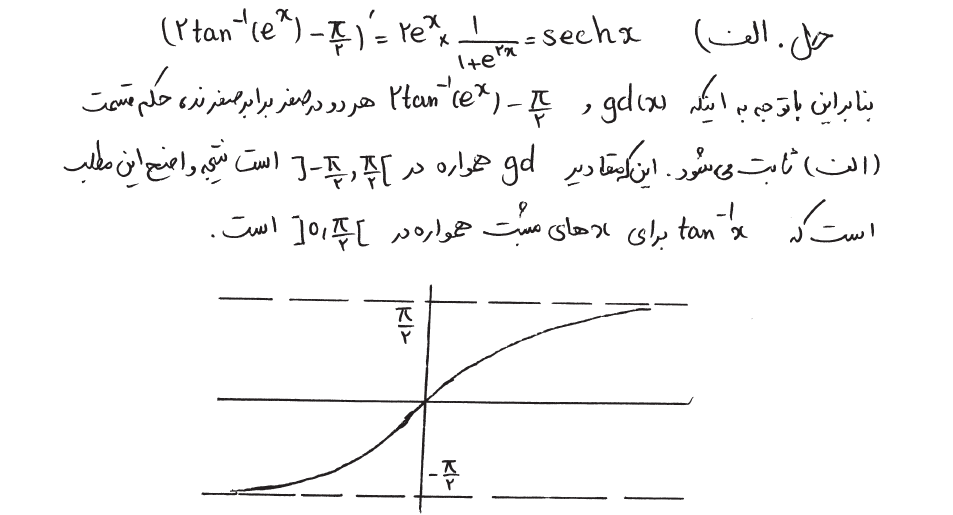 حل. الف) (۲tan⁻¹(eˣ) − π/۲)′ = ۲eˣ × 1/(1+e^۲x) = sech x
بنابراین با توجه به اینکه gd(x) و ۲tan⁻¹(eˣ) − π/۲ هر دو در صفر برابر صفرند، حکم قسمت
(الف) ثابت می‌شود. این که مقادیر gd همواره در ]−π/۲, π/۲[ است نتیجه واضح این مطلب
است که tan⁻¹x برای xهای مثبت همواره در ]0, π/۲[ است.
π/۲
−π/۲